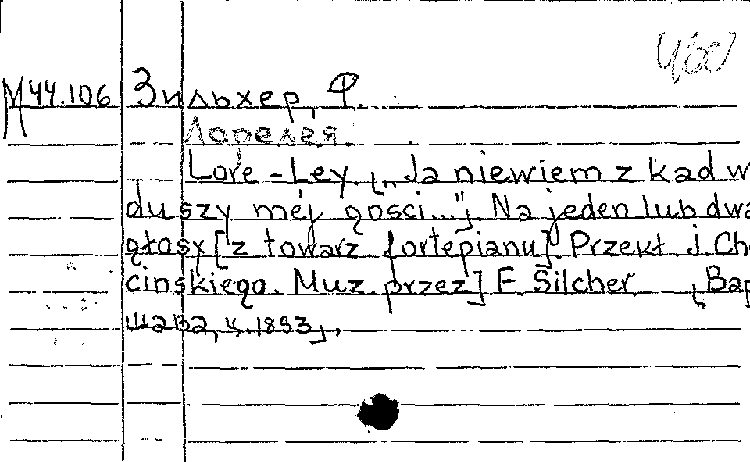 460
М44.106 Зильхер, Ф.
Лорелея.
Lore-Ley. [„Ja niewiem z kad w
duszy mej gości..."]. Na jeden lub dwa
głosy [z towarz fortepianu]. Przekł. J. Cho
cinskiego. Muz. przez] F. Silcher [Вар
шава, ц. 1853].